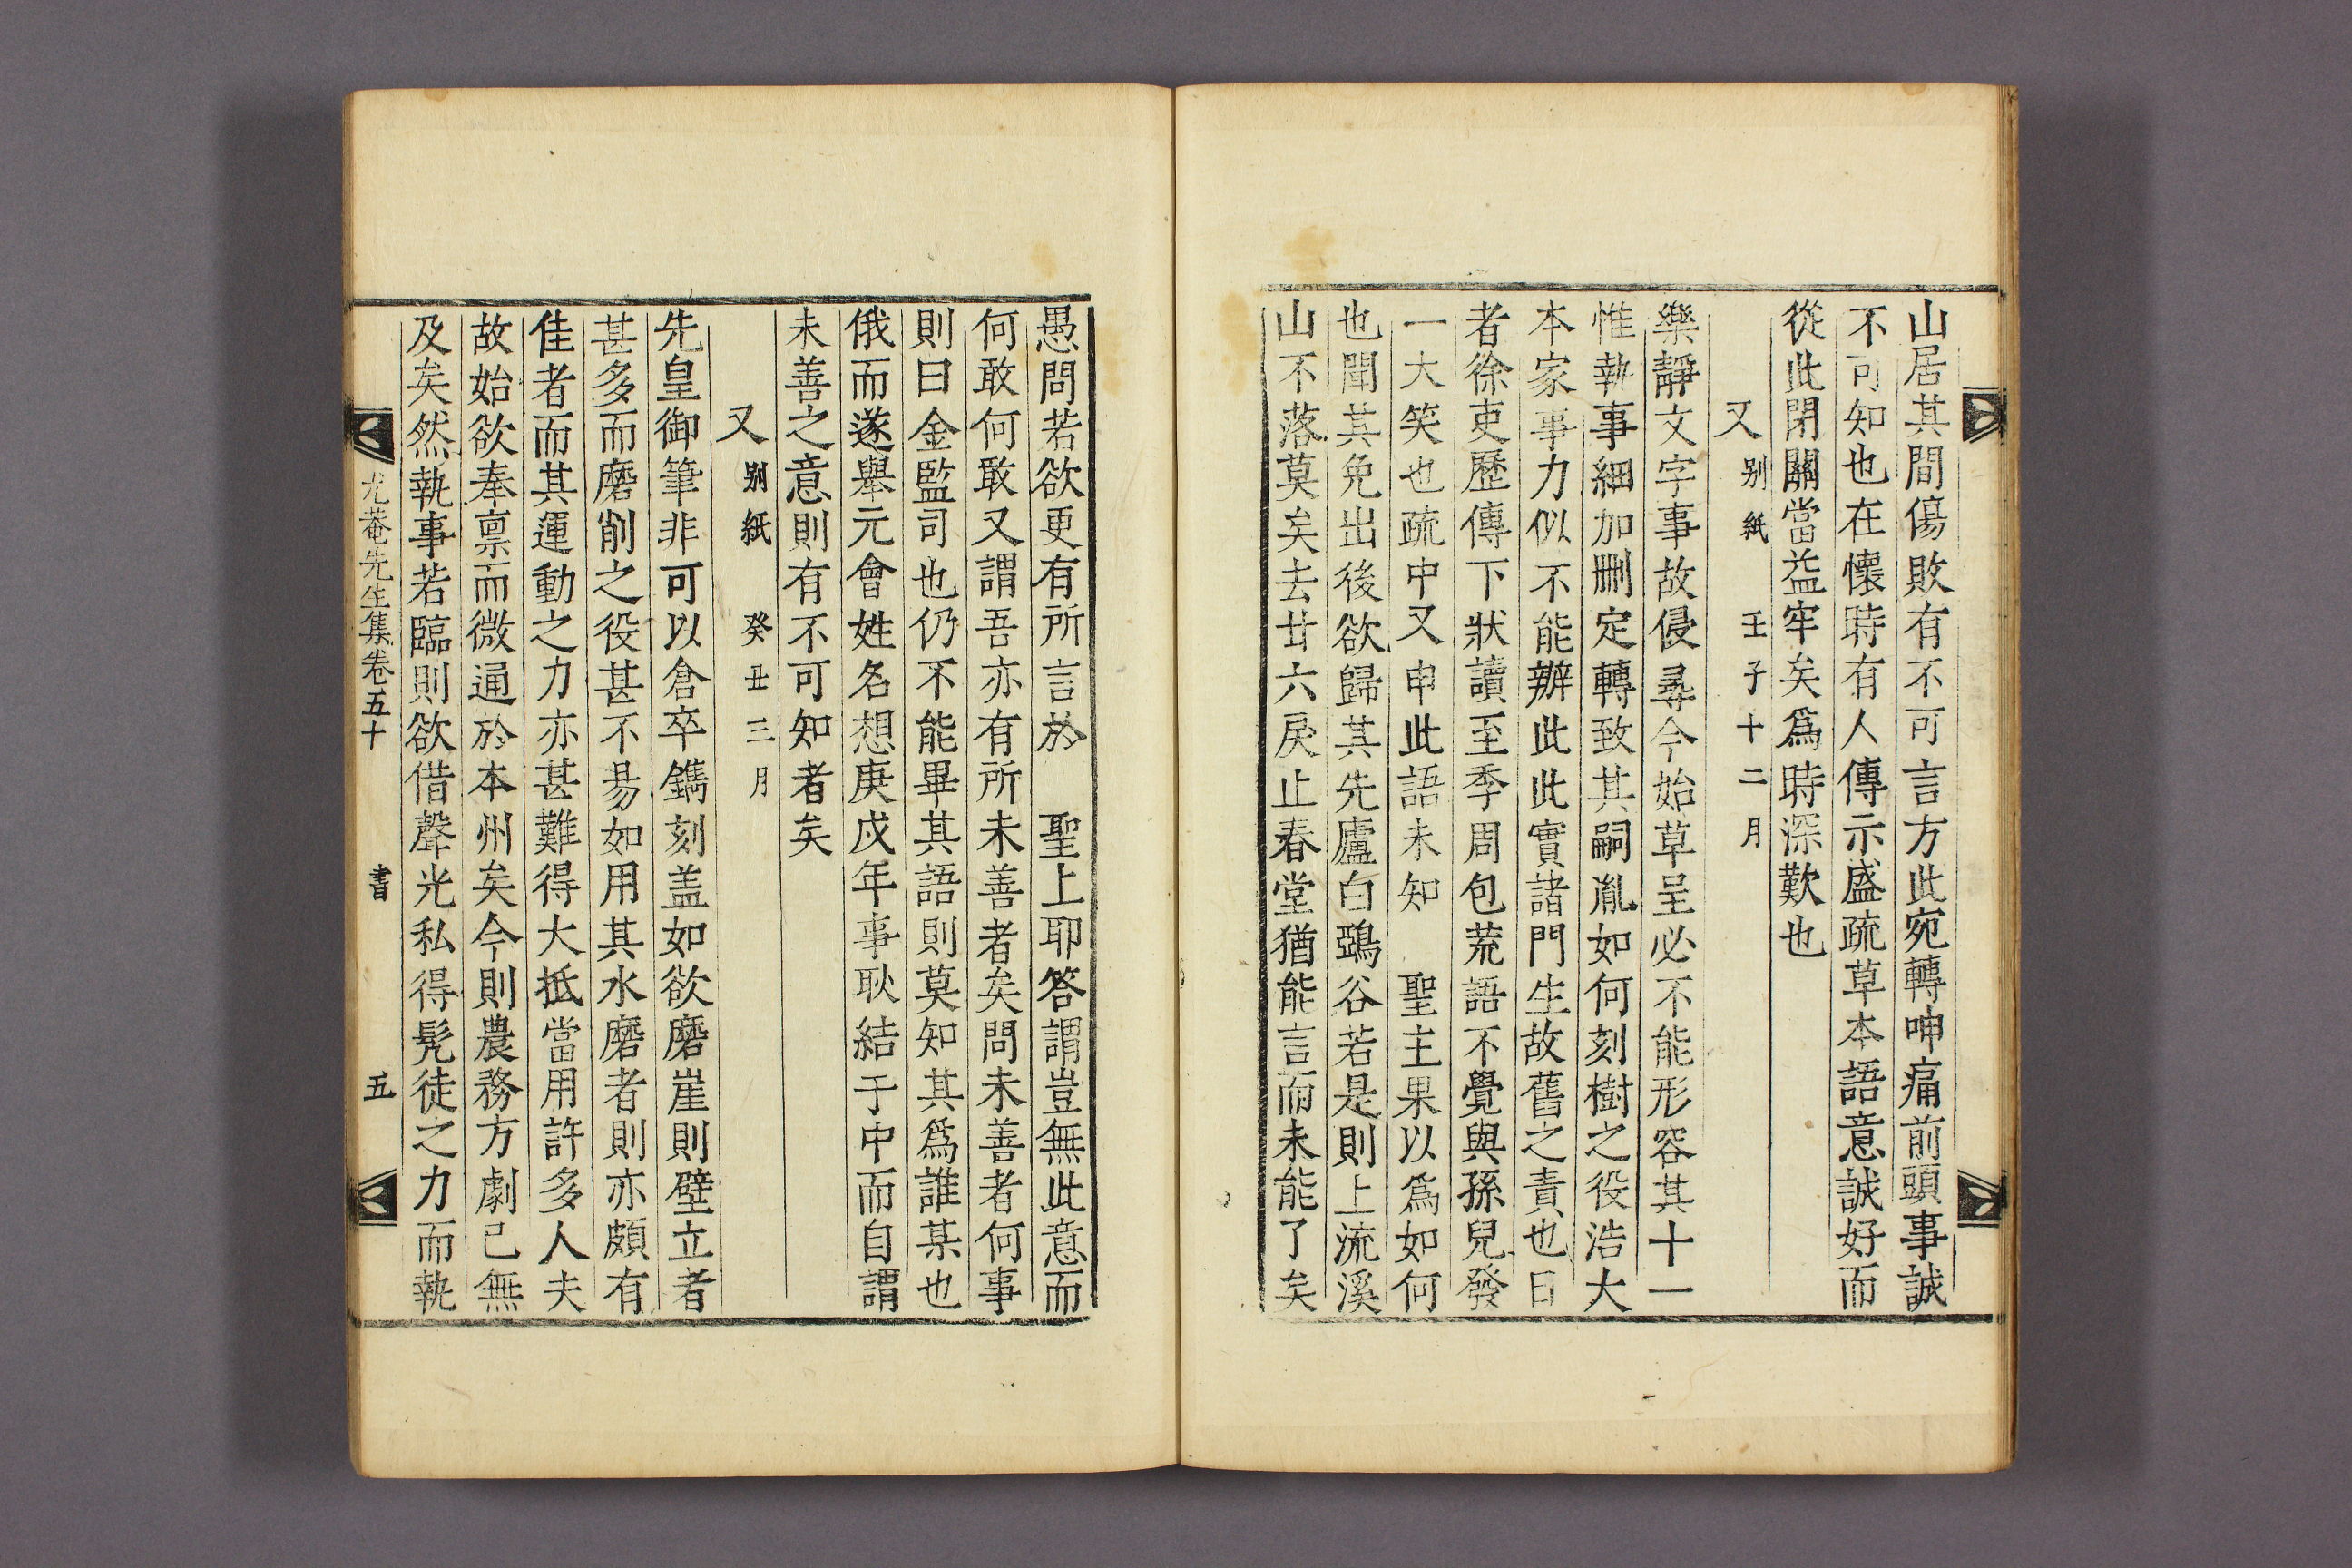 山居其間傷敗有不可言方此宛轉呻痛前頭事誠
不可知也在懷時有人傳示盛疏草本語意誠好而
從此閉關當益牢矣爲時深歎也
又 别紙 壬子十二月
樂靜文字事故侵尋今始草呈必不能形容其十一
惟執事細加刪定轉致其嗣胤如何刻樹之役浩大
本家事力似不能辦此此實諸門生故舊之責也日
者徐吏歷傳下狀讀至季周包荒語不覺與孫兒發
一大笑也疏中又申此語未知 聖主果以爲如何
也聞其免出後欲歸其先廬白鵶谷若是則上流溪
山不落莫矣去廿六戾止春堂猶能言而未能了矣
愚問若欲更有所言於 聖上耶答謂豈無此意而
何敢何敢又謂吾亦有所未善者矣問未善者何事
則曰金監司也仍不能畢其語則莫知其爲誰某也
俄而遂舉元會姓名想庚戌年事耿結于中而自謂
未善之意則有不可知者矣
又 别紙 癸丑三月
先皇御筆非可以倉卒鐫刻盖如欲磨崖則壁立者
甚多而磨削之役甚不易如用其水磨者則亦頗有
佳者而其運動之力亦甚難得大抵當用許多人夫
故始欲奉禀而微通於本州矣今則農務方劇已無
及矣然執事若臨則欲借聲光私得髡徒之力而執
尤菴先生集卷五十 書 五